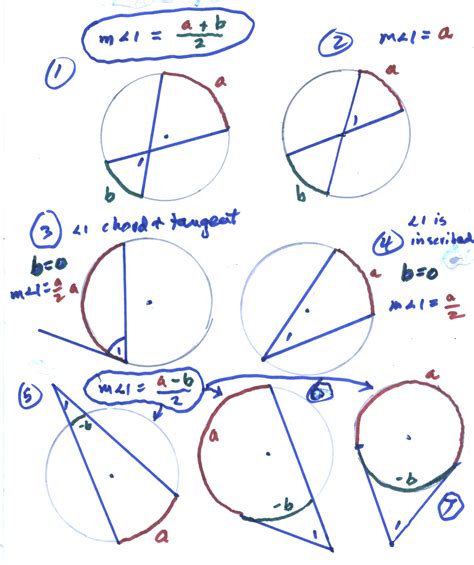 m∠1 = a + b / 2
① 
② m∠1 = a
a
1
b
a
1
b
③ ∠1 chord + tangent
b=0
m∠1 = a/2
a
1
④ ∠1 is
inscribed
b=0
m∠1 = a/2
a
1
⑤ m∠1 = a - b / 2
1
-b
a
⑥
a
-b
1
⑦
a
-b
1